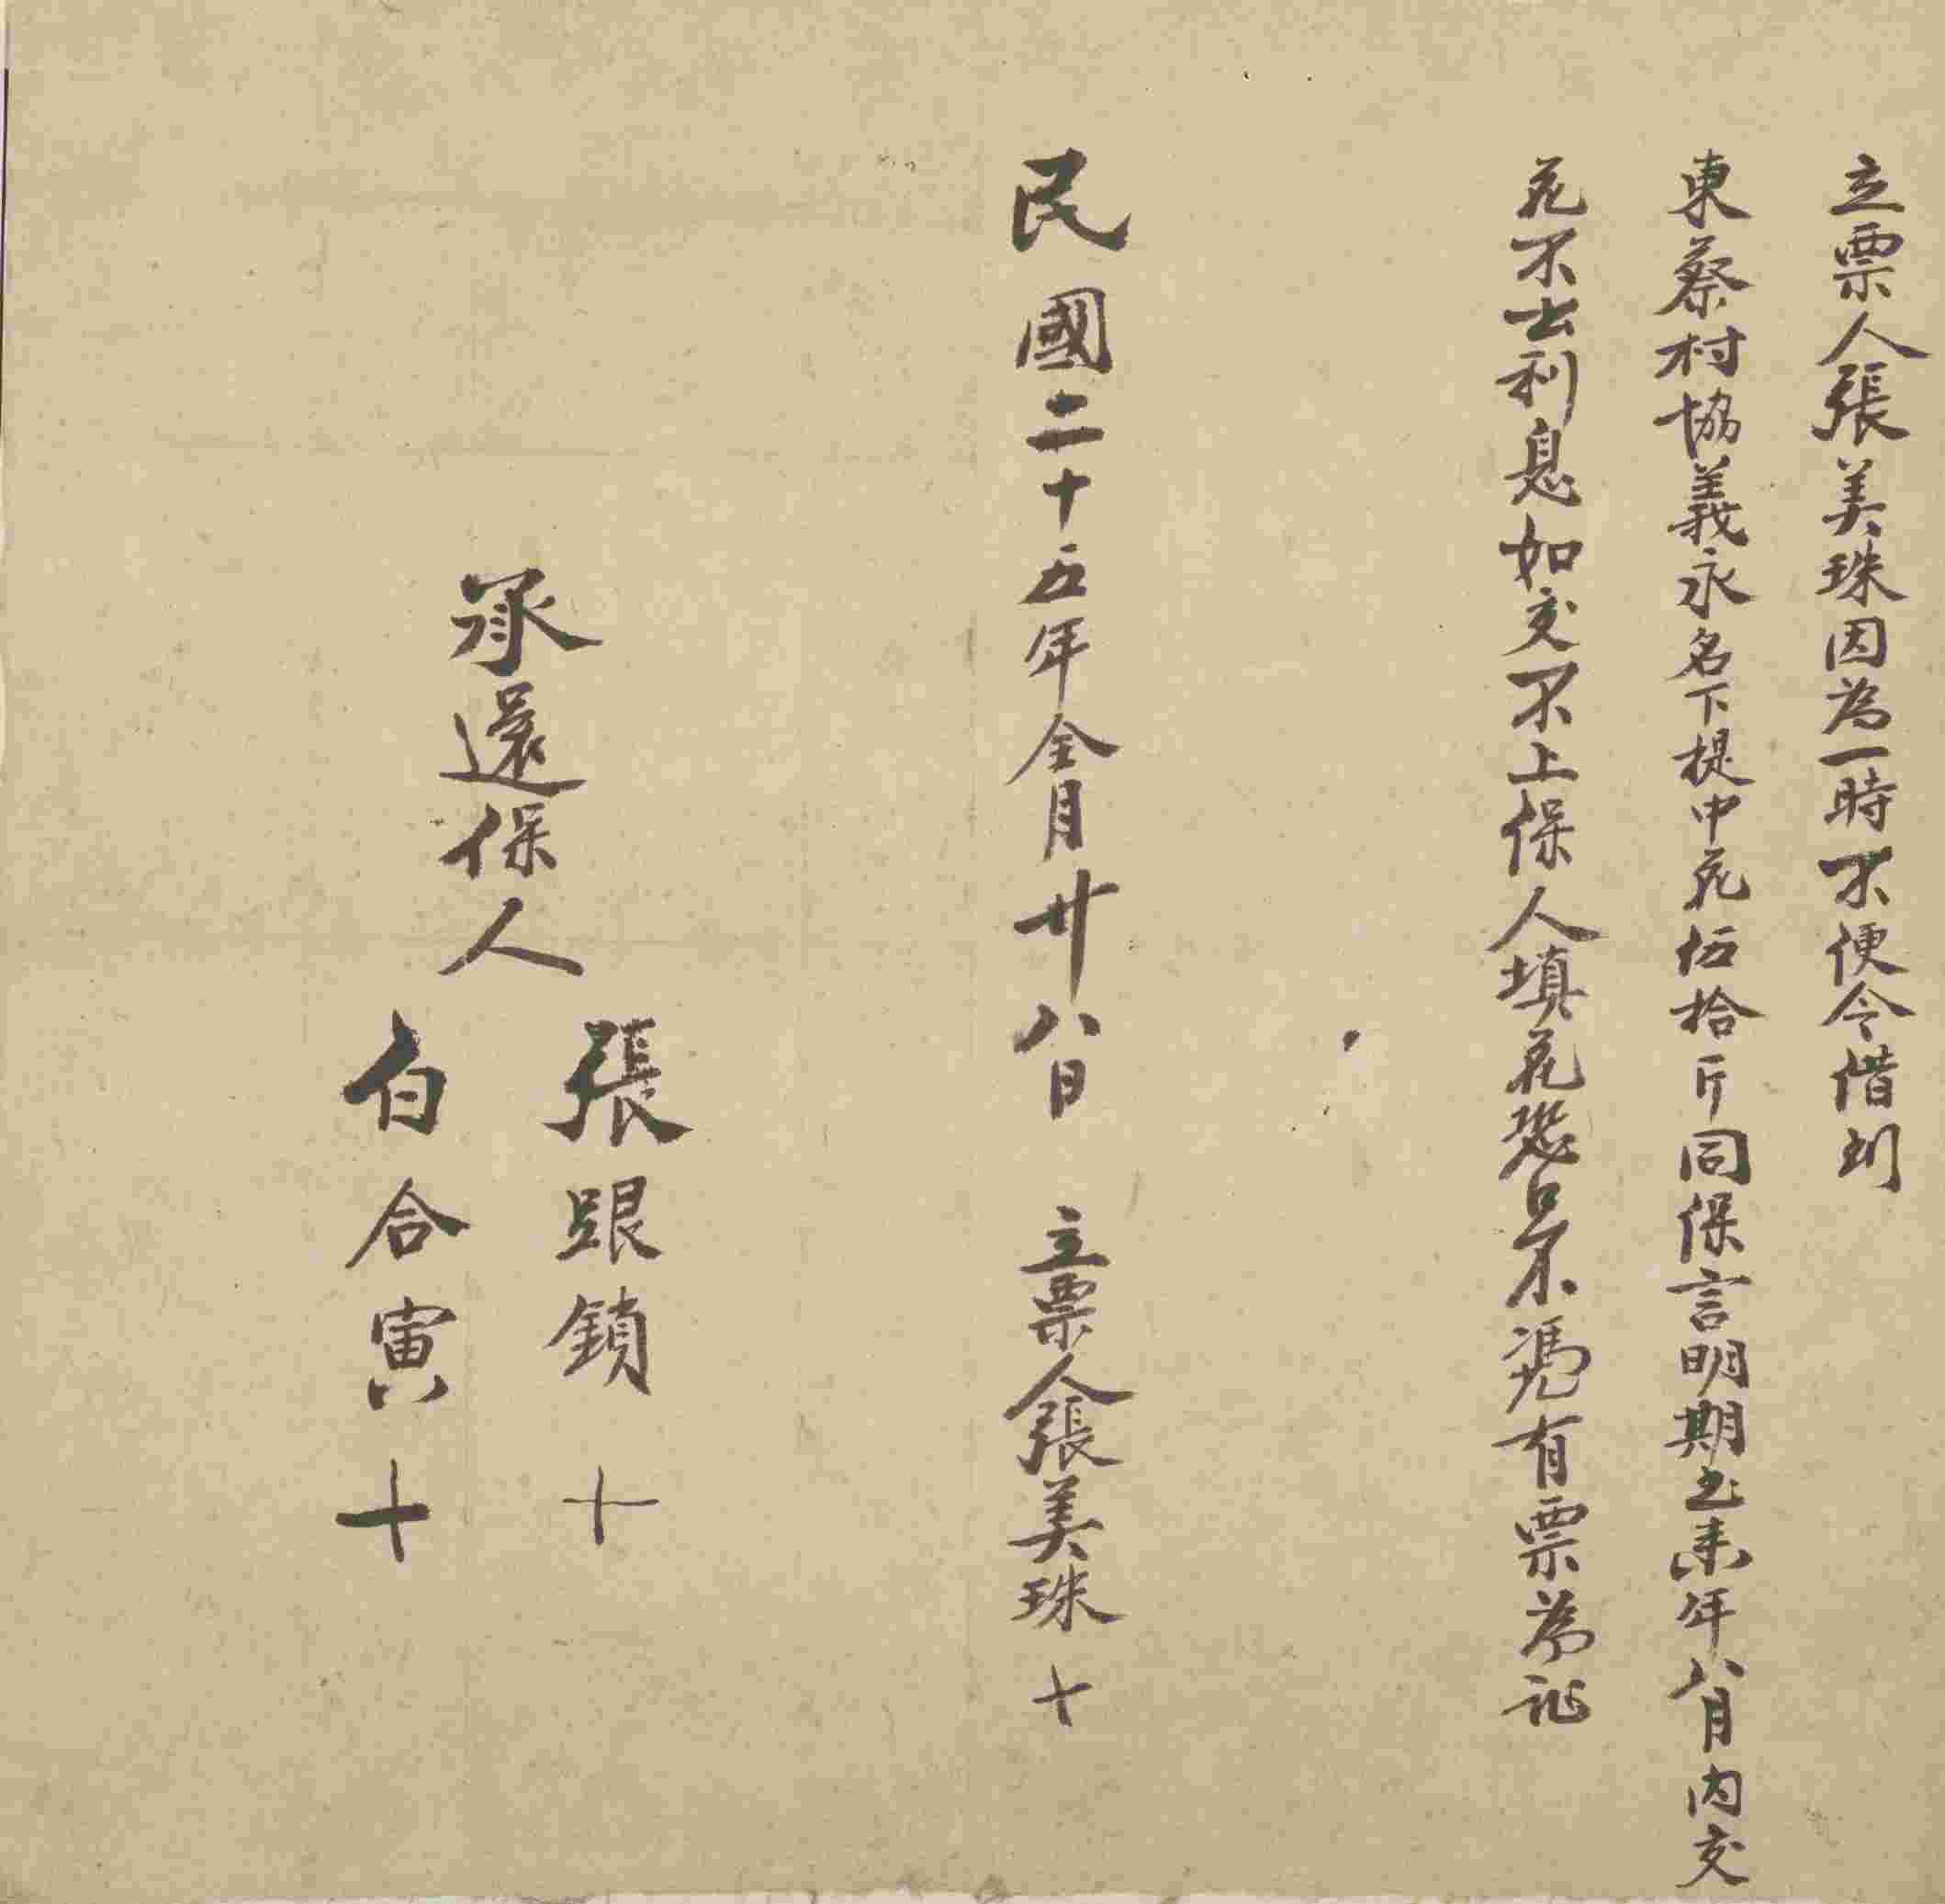 立票人張美珠因為一時不便今借到
東蔡村協義永名下提中花伍拾斤同保言明期至来年八月内交
花不出利息如交不上保人填花恐口不憑有票為証
民國二十五年全月廿八日 立票人張美珠 十
承還保人
張跟鎖 十
白合寅 十